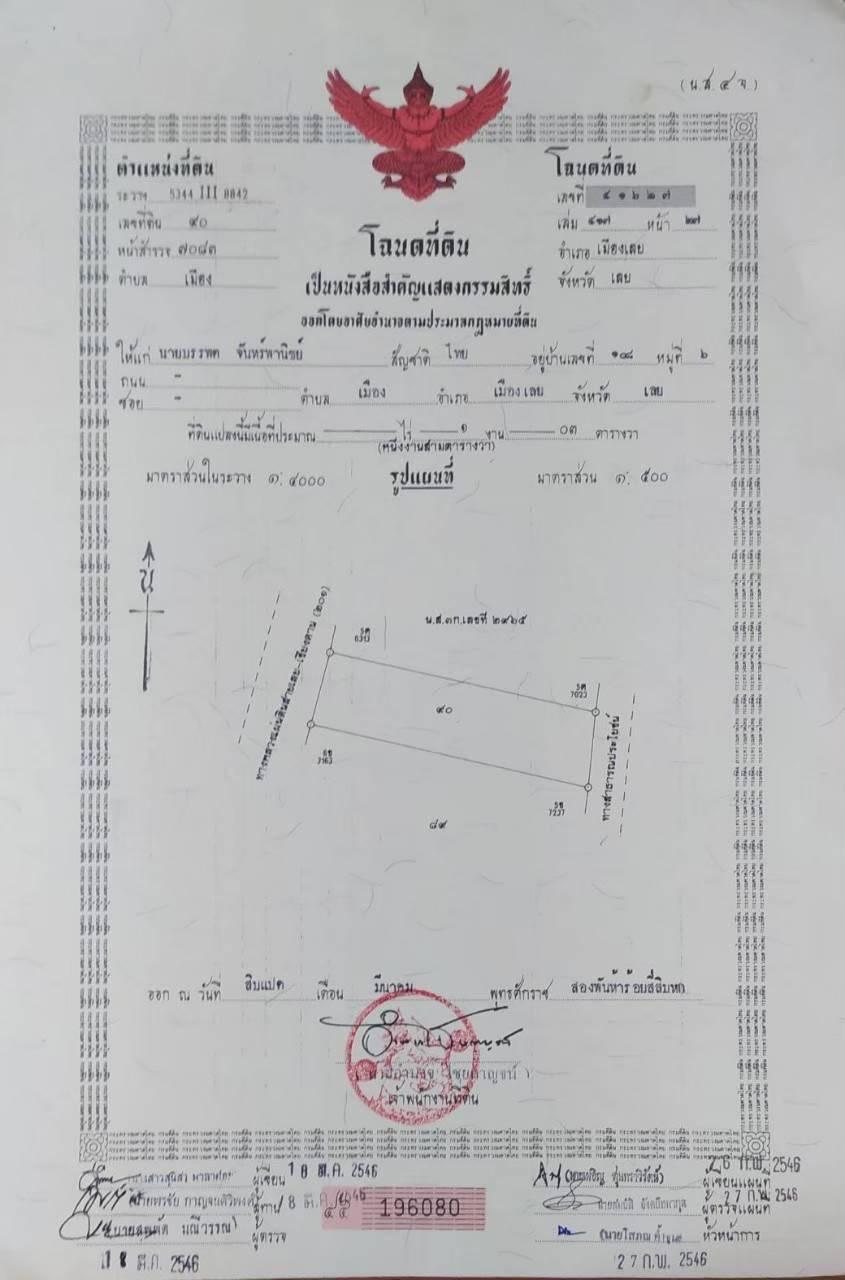 (น.ส.๔ จ.)
ตำแหน่งที่ดิน
ระวาง 5344 III 8842
เลขที่ดิน ๙๐
หน้าสำรวจ ๗๐๘๓
ตำบล เมือง
โฉนดที่ดิน
เลขที่ ๔๑๖๒๗
เล่ม ๔๑๗ หน้า ๒๗
อำเภอ เมืองเลย
จังหวัด เลย
โฉนดที่ดิน
เป็นหนังสือสำคัญแสดงกรรมสิทธิ์
ออกโดยอาศัยอำนาจตามประมวลกฎหมายที่ดิน
ให้แก่ นายบรรพต จันทร์พานิชย์ สัญชาติ ไทย อยู่บ้านเลขที่ ๑๘๘ หมู่ที่ ๖
ถนน -
ซอย - ตำบล เมือง อำเภอ เมืองเลย จังหวัด เลย
ที่ดินแปลงนี้มีเนื้อที่ประมาณ ไร่ ๑ งาน ๐๓ ตารางวา
(หนึ่งงานสามตารางวา)
มาตราส่วนในระวาง ๑: ๔๐๐๐ รูปแผนที่ มาตราส่วน ๑: ๕๐๐
น
ทางหลวงแผ่นดินสายเลย-เชียงคาน (๒๐๑)
น.ส.๓ก.เลขที่ ๒๙๖๕
๙๐
๘๙
ทางสาธารณประโยชน์
ออก ณ วันที่ สิบแปด เดือน มีนาคม พุทธศักราช สองพันห้าร้อยสี่สิบหก
เจ้าพนักงานที่ดิน
ผู้เขียน 18 มี.ค. 2546
ผู้ทาน 18 มี.ค. 2546
ผู้ตรวจ
18 มี.ค. 2546
๔๕ 196080
26 ก.พ. 2546
ผู้เขียนแผนที่
27 ก.พ. 2546
ผู้ตรวจแผนที่
หัวหน้าการ
27 ก.พ. 2546